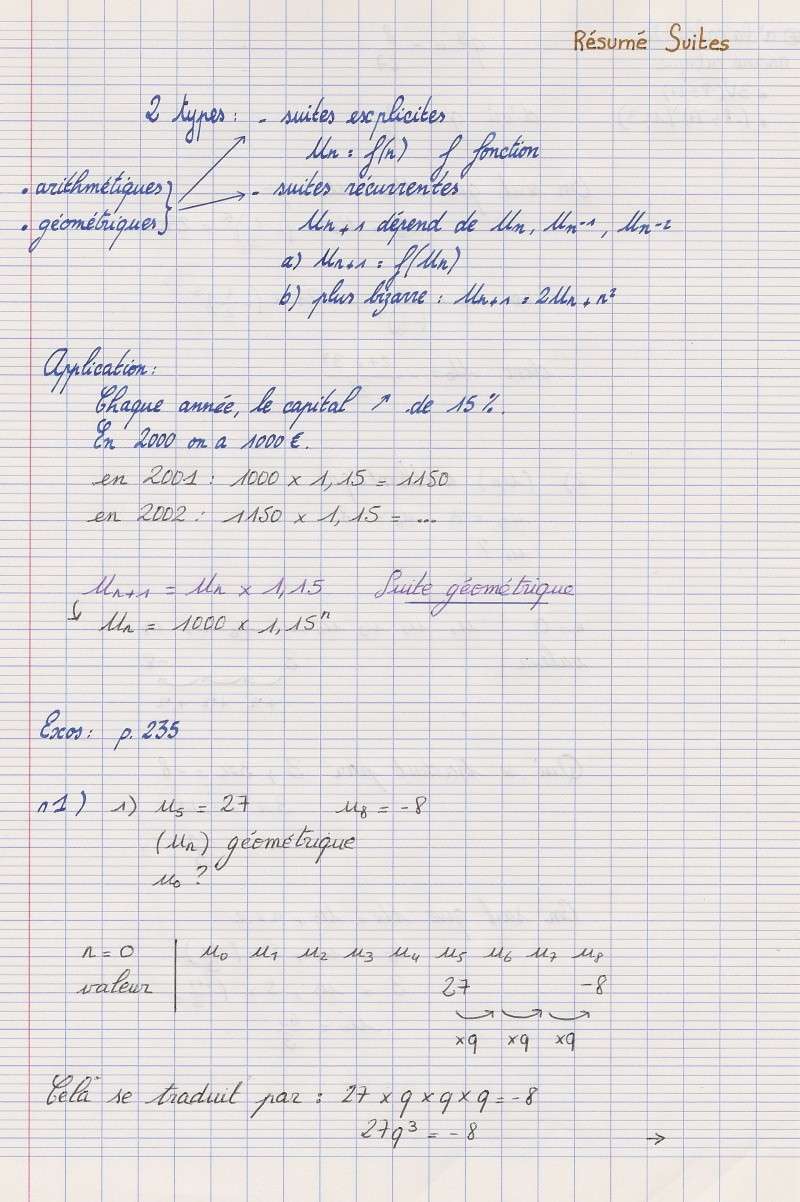 Résumé Suites
2 types : - suites explicites
Un = f(n) f fonction
• arithmétiques
- suites récurrentes
• géométriques
Un+1 dépend de Un, Un-1, Un-2
a) Un+1 = f(Un)
b) plus bizarre : Un+1 = 2Un + n²
Application :
Chaque année, le capital ↗ de 15 %.
En 2000 on a 1000 €.
en 2001 : 1000 × 1,15 = 1150
en 2002 : 1150 × 1,15 = ...
Un+1 = Un × 1,15 Suite géométrique
↳ Un = 1000 × 1,15ⁿ
Exos : p. 235
n1) 1) U5 = 27 U8 = -8
(Un) géométrique
U0 ?
n = 0 | U0 U1 U2 U3 U4 U5 U6 U7 U8
valeur | 27 -8
×q ×q ×q
Celà se traduit par : 27 × q × q × q = -8
27q³ = -8 →